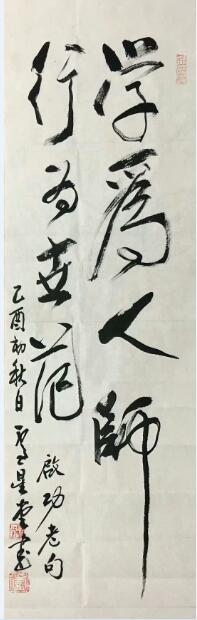 学為人師
行为世范
啟功老句
乙酉初秋日